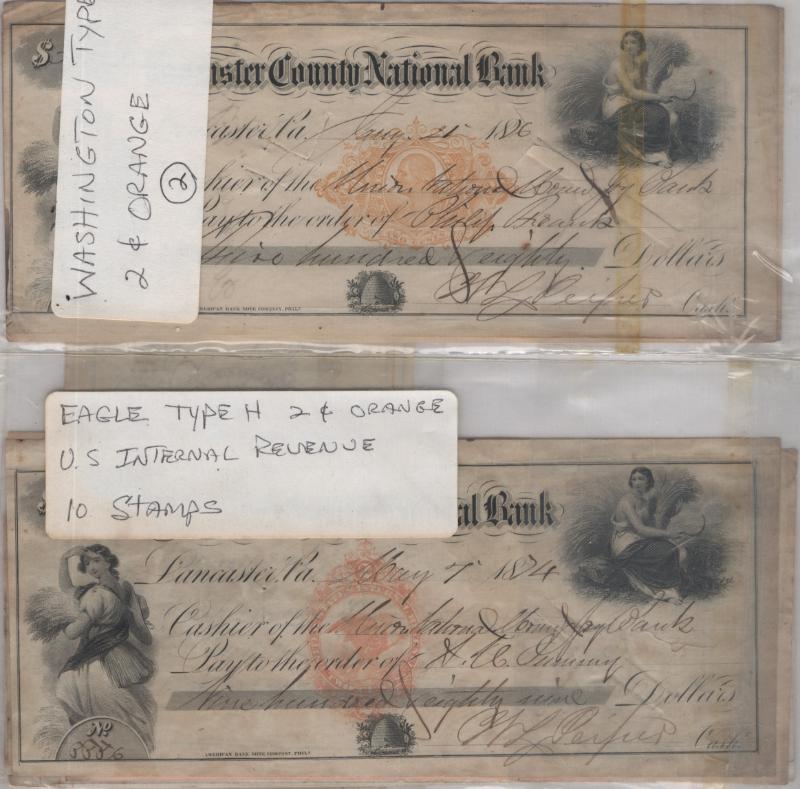 WASHINGTON TYPE
2¢ ORANGE
2
$
aster County National Bank
caster, Pa. Aug. 21 1876
hier of the Union National Mount Joy Bank
Pay to the order of Philip
hundred & eighty Dollars
AMERICAN BANK NOTE COMPANY, PHILA.
Cash.
EAGLE TYPE H 2¢ ORANGE
U.S INTERNAL REVENUE
10 STAMPS
al Bank
Lancaster, Pa. May 7 1874
Cashier of the Union National Mount Joy Bank
Pay to the order of
Nine hundred eighty nine Dollars
No.
AMERICAN BANK NOTE COMPANY, PHILA.
Cash.